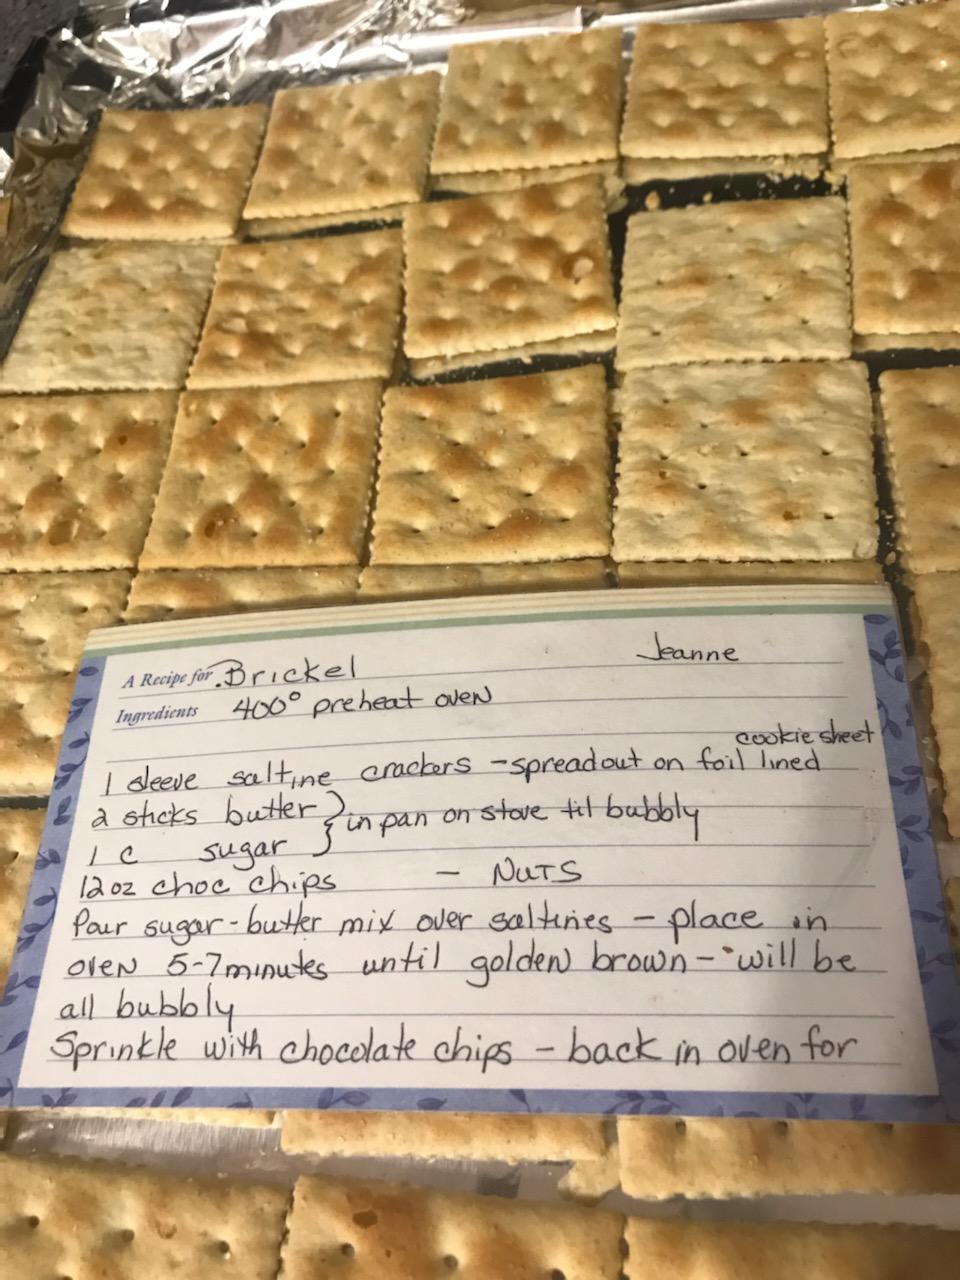 Jeanne
A Recipe for Brickel
Ingredients 400° preheat oven
cookie sheet
1 sleeve saltine crackers - spread out on foil lined
2 sticks butter } in pan on stove til bubbly
1 c sugar
12 oz choc chips - NUTS
Pour sugar-butter mix over saltines - place in
oven 5-7 minutes until golden brown - will be
all bubbly
Sprinkle with chocolate chips - back in oven for